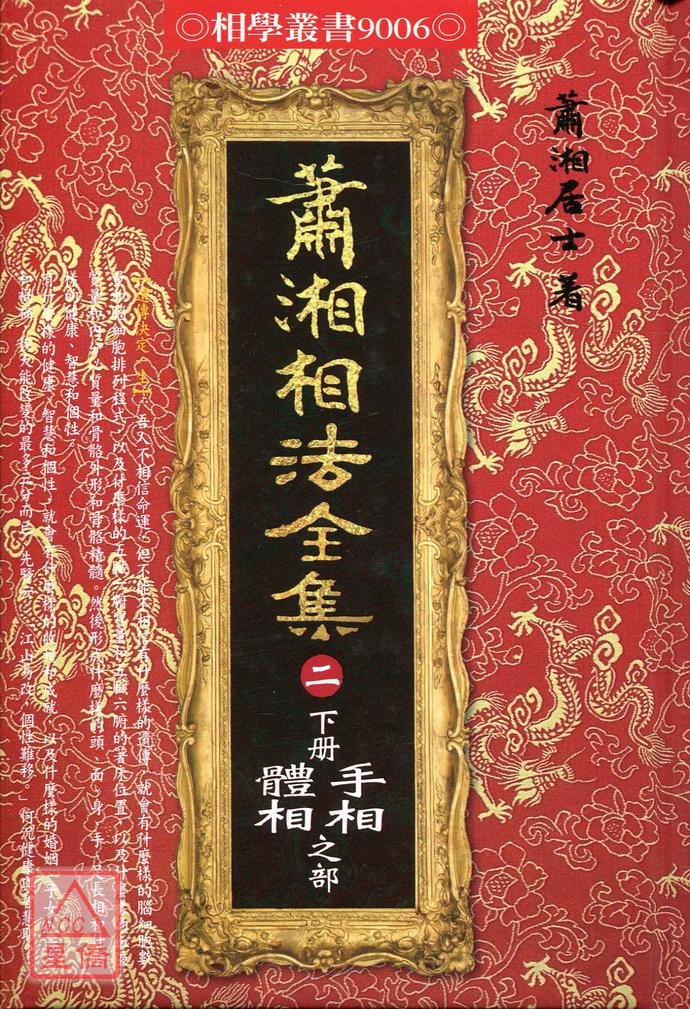 ◎相學叢書9006◎
蕭湘居士 著
蕭湘相法全集
二
下册
手相
體相
之部
【遺傳決定一生】
吾人不相信命運，但不能不相信有什麼樣的遺傳，就會有什麼樣的腦細胞數
細胞排列程式，以及什麼樣的五
六腑的著床位置，以及什麼樣
質量和骨骼外形和骨骼精髓。然後形成什麼樣的頭、面、身、手、足長相
樣的健康、智慧和個性。
有什麼樣的健康、智慧和個性，就會有什麼樣的
成就，以及什麼樣的婚姻、子女
能改變的最多三分而已。先賢云：「江山易改，個性難移。」何況健康與智慧耶
NCC
星僑